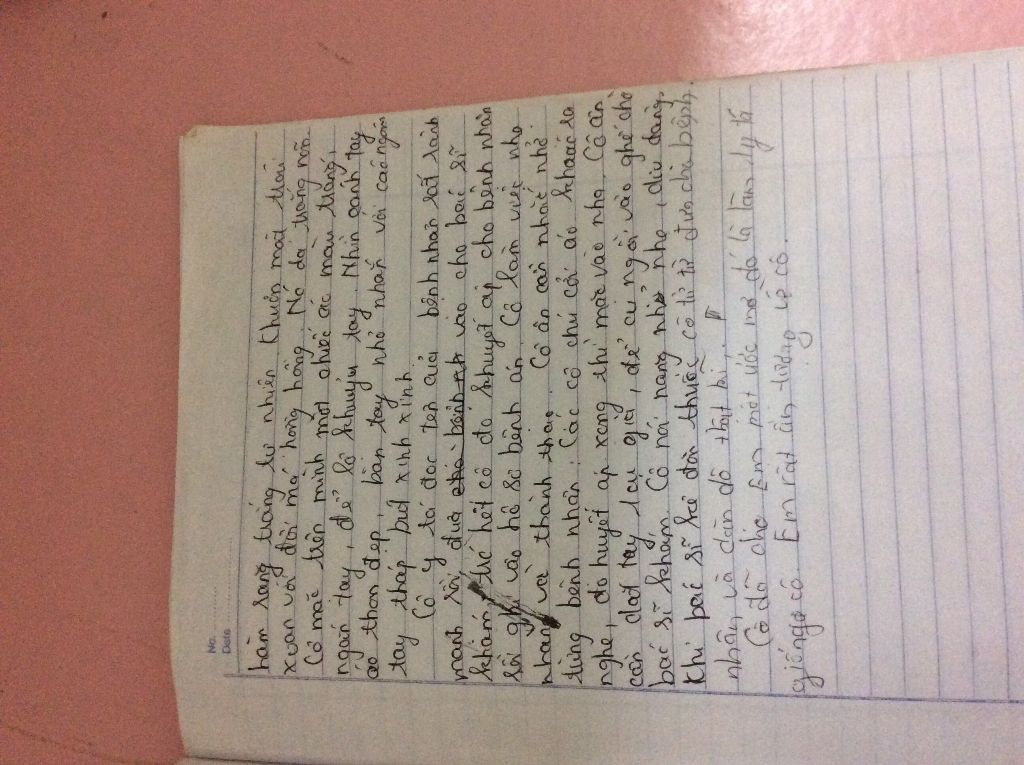 No.
Date
hàm rang trắng tự nhiên. Khuôn mặt trái
xoan với đôi má hồng hồng. Nó da trắng nõn.
Cô mặc trên mình một chiếc áo màu trắng,
ngắn tay, để lộ khuỷu tay. Nhìn cánh tay
cô thon đẹp, bàn tay nhỏ nhắn với các ngón
tay tháp bút xinh xinh.
Cô y tá đọc tên của bệnh nhân rất rành
mạnh rồi, đưa vào cho bác sĩ
khám, trước hết cô đo khuyết áp cho bệnh nhân
rồi ghi vào hồ sơ bệnh án. Cô làm việc nhẹ
nhàng và thành thạo. Cô ân cần nhắc nhở
từng bệnh nhân: Các cô chú cởi áo khoác ra
nghe, đo huyết áp xong thì mặc vào nha. Cô ân
cần dắt tay cụ già, để cụ ngồi vào ghế chờ
bác sĩ khám. Cô nói năng nhỏ nhẹ, dịu dàng.
Khi bác sĩ kê đơn thuốc, cô từ từ đưa cho bệnh
nhân và dặn dò thật kĩ,
Cô đã cho em một ước mơ đó là làm y tá
giống cô. Em rất ấn tượng về cô.